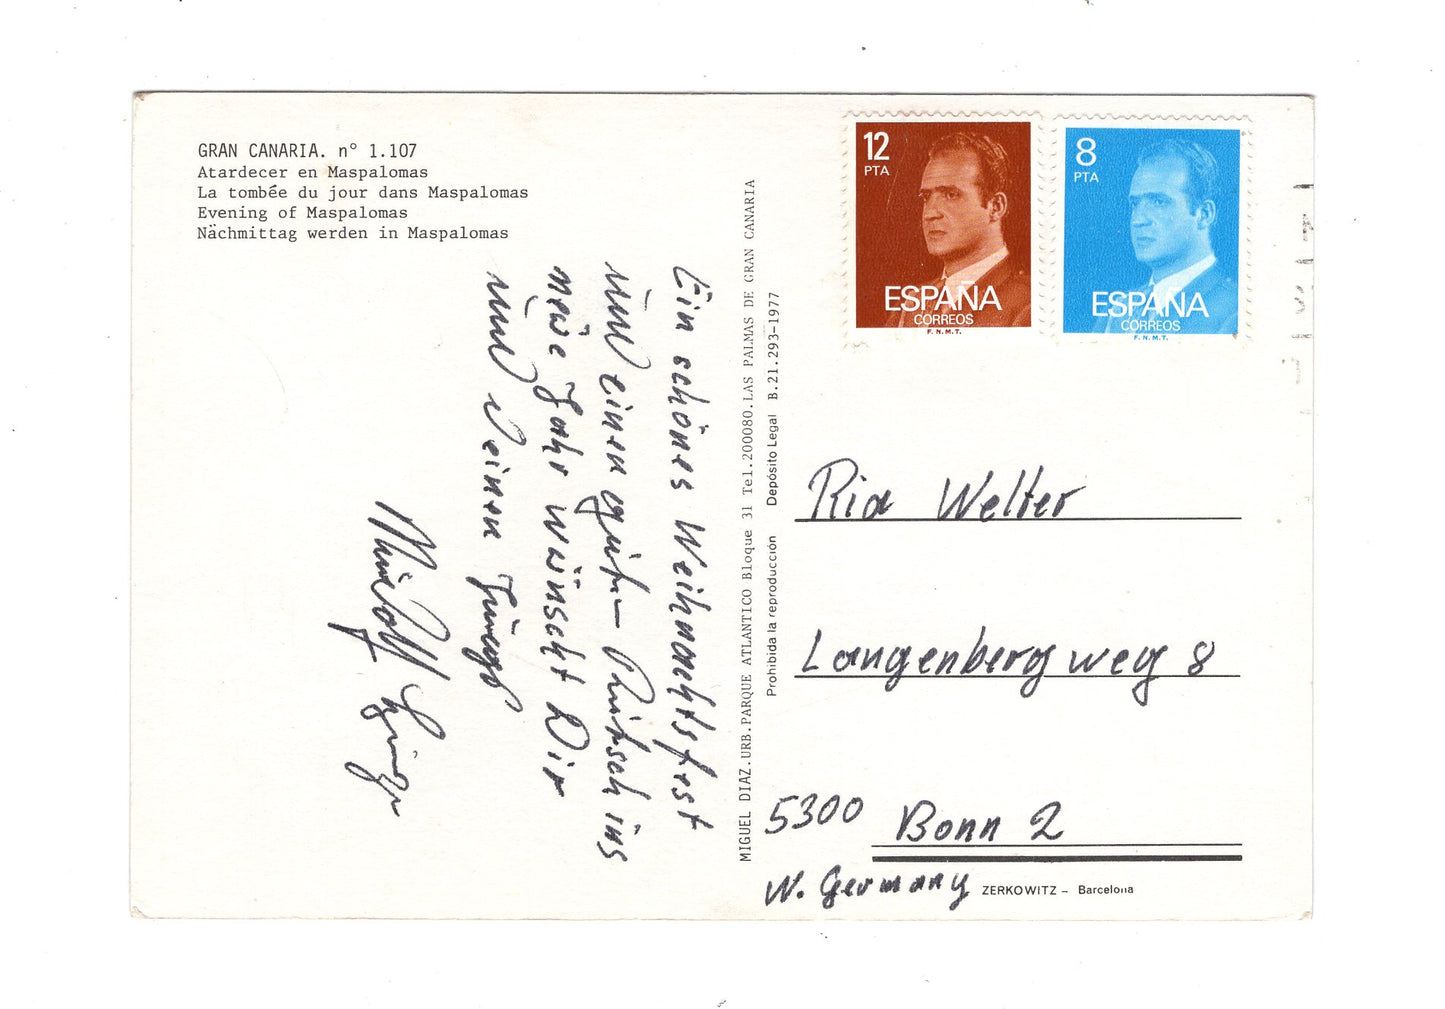 GRAN CANARIA. n° 1.107
Atardecer en Maspalomas
La tombée du jour dans Maspalomas
Evening of Maspalomas
Nächmittag werden in Maspalomas
Ein schönes Weihnachtsfest
und einen guten Rutsch ins
neue Jahr wünscht Dir
und Deinen Jungs
MIGUEL DIAZ.URB.PARQUE ATLANTICO Bloque 31 Tel.200080.LAS PALMAS DE GRAN CANARIA
Prohibida la reproducción Depósito Legal B.21.293-1977
12
PTA
ESPAÑA
CORREOS
F.N.M.T.
8
PTA
ESPAÑA
CORREOS
F.N.M.T.
Ria Welter
Langenbergweg 8
5300 Bonn 2
W. Germany
ZERKOWITZ – Barcelona